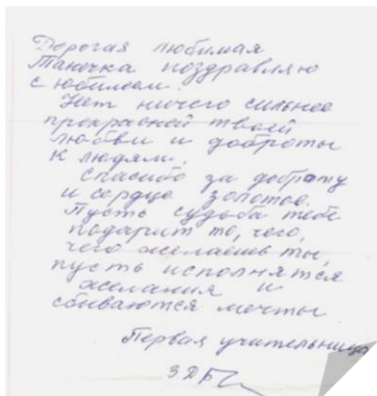 Дорогая любимая
Танечка поздравляю
с юбилеем.
Нет ничего сильнее
прекрасней твоей
любви и доброты
к людям.
Спасибо за доброту
и сердце золотое.
Пусть судьба тебе
подарит то, чего,
чего желаешь ты,
пусть исполнятся
желания и
сбываются мечты
Первая учительница
ЗДБ